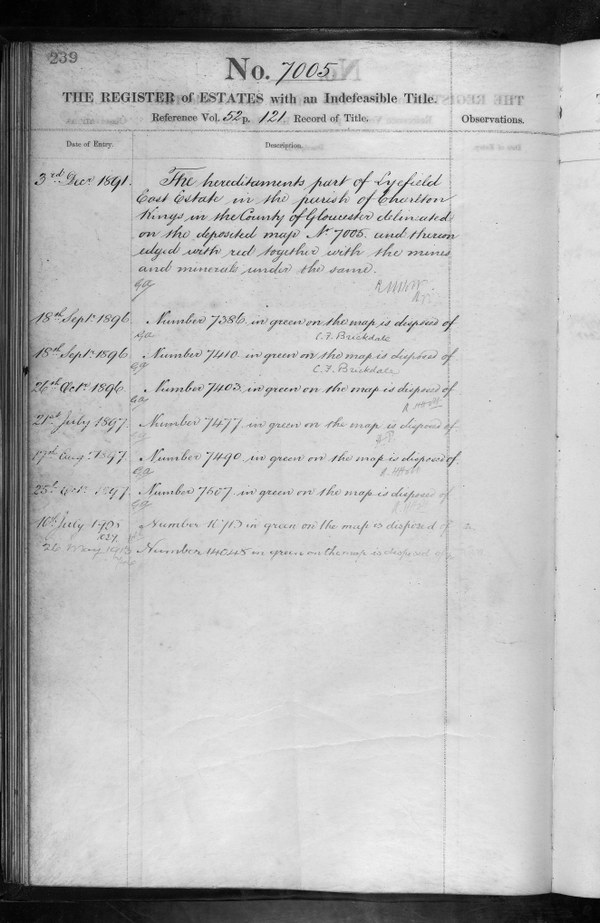 239
No. 7005
THE REGISTER of ESTATES with an Indefeasible Title.
Reference Vol. 52 p. 121 Record of Title.
Observations.
Date of Entry.
Description.
3rd Decr 1891.
The hereditaments part of Lyefield
East Estate in the parish of Charlton
Kings in the County of Gloucester delineated
on the deposited map No 7005 and thereon
edged with red together with the mines
and minerals under the same.
18th Septr 1896. Number 7386 in green on the map is disposed of
C.F. Brickdale
18th Septr 1896 Number 7410 in green on the map is disposed of
C.F. Brickdale
26th Octr 1896 Number 7403 in green on the map is disposed of
21st July 1897. Number 7477 in green on the map is disposed of
Augt 1897 Number 7490 in green on the map is disposed of
25th 1897 Number 7507 in green on the map is disposed of
July Number in green on the map is disposed of
26 Number in green on the map is disposed of